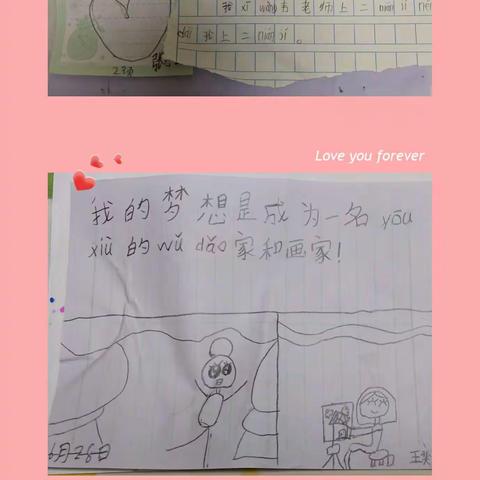 我 xī wàng 书 老师上二 nián jí
我上二 nián jí 。
Love you forever
我的梦想是成为一名 yōu
xiù 的 wǔ dǎo 家和画家！
6月28日
王